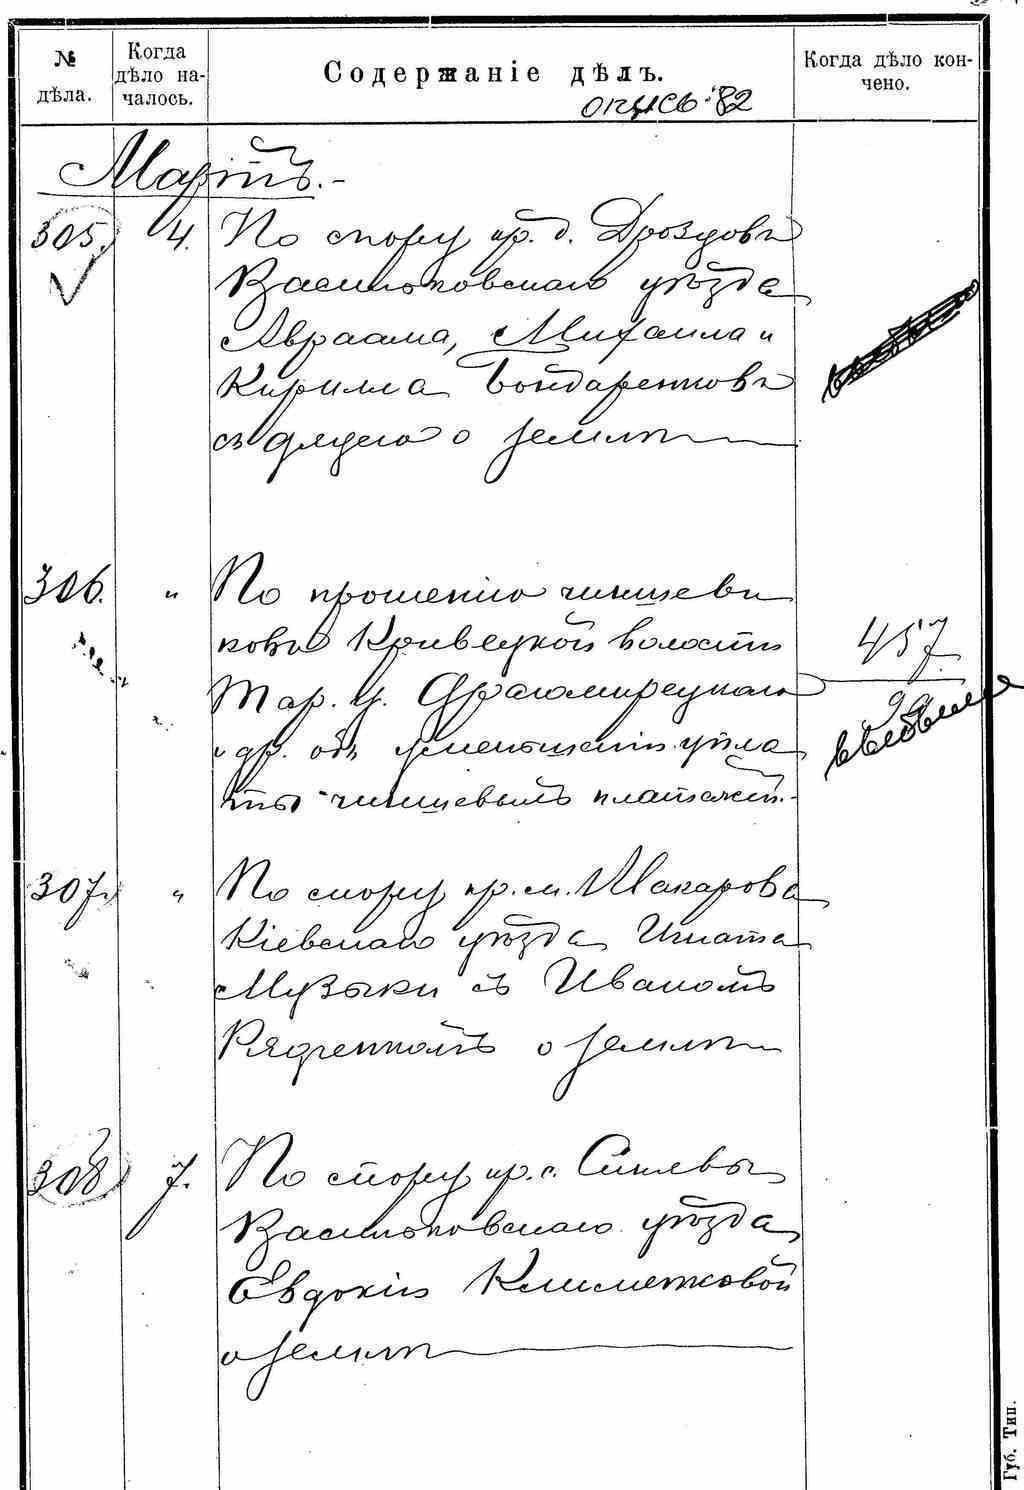 № дѣла.
Когда дѣло началось.
Содержаніе дѣлъ.
Когда дѣло кончено.
опись 82
Мартъ.
305. 4. По спору кр. д. Дроздовъ
Васильковскаго уѣзда
Авраама, Михаила и
Кирилла Бондаренковъ
съ дядею о землѣ
306. " По прошенію чиншеви
ковъ Кривецкой волости
Тар. у.
и др. объ уменьшеніи упла
ты чиншевымъ платежей.
457
99
307. " По спору кр. м. Макарова
Кіевскаго уѣзда Игната
Музыки съ Иваномъ
Рядченкомъ о землѣ
308 7. По спору кр. с.
Васильковскаго уѣзда
Евдокіи Клименковой
о землѣ
Губ. Тип.